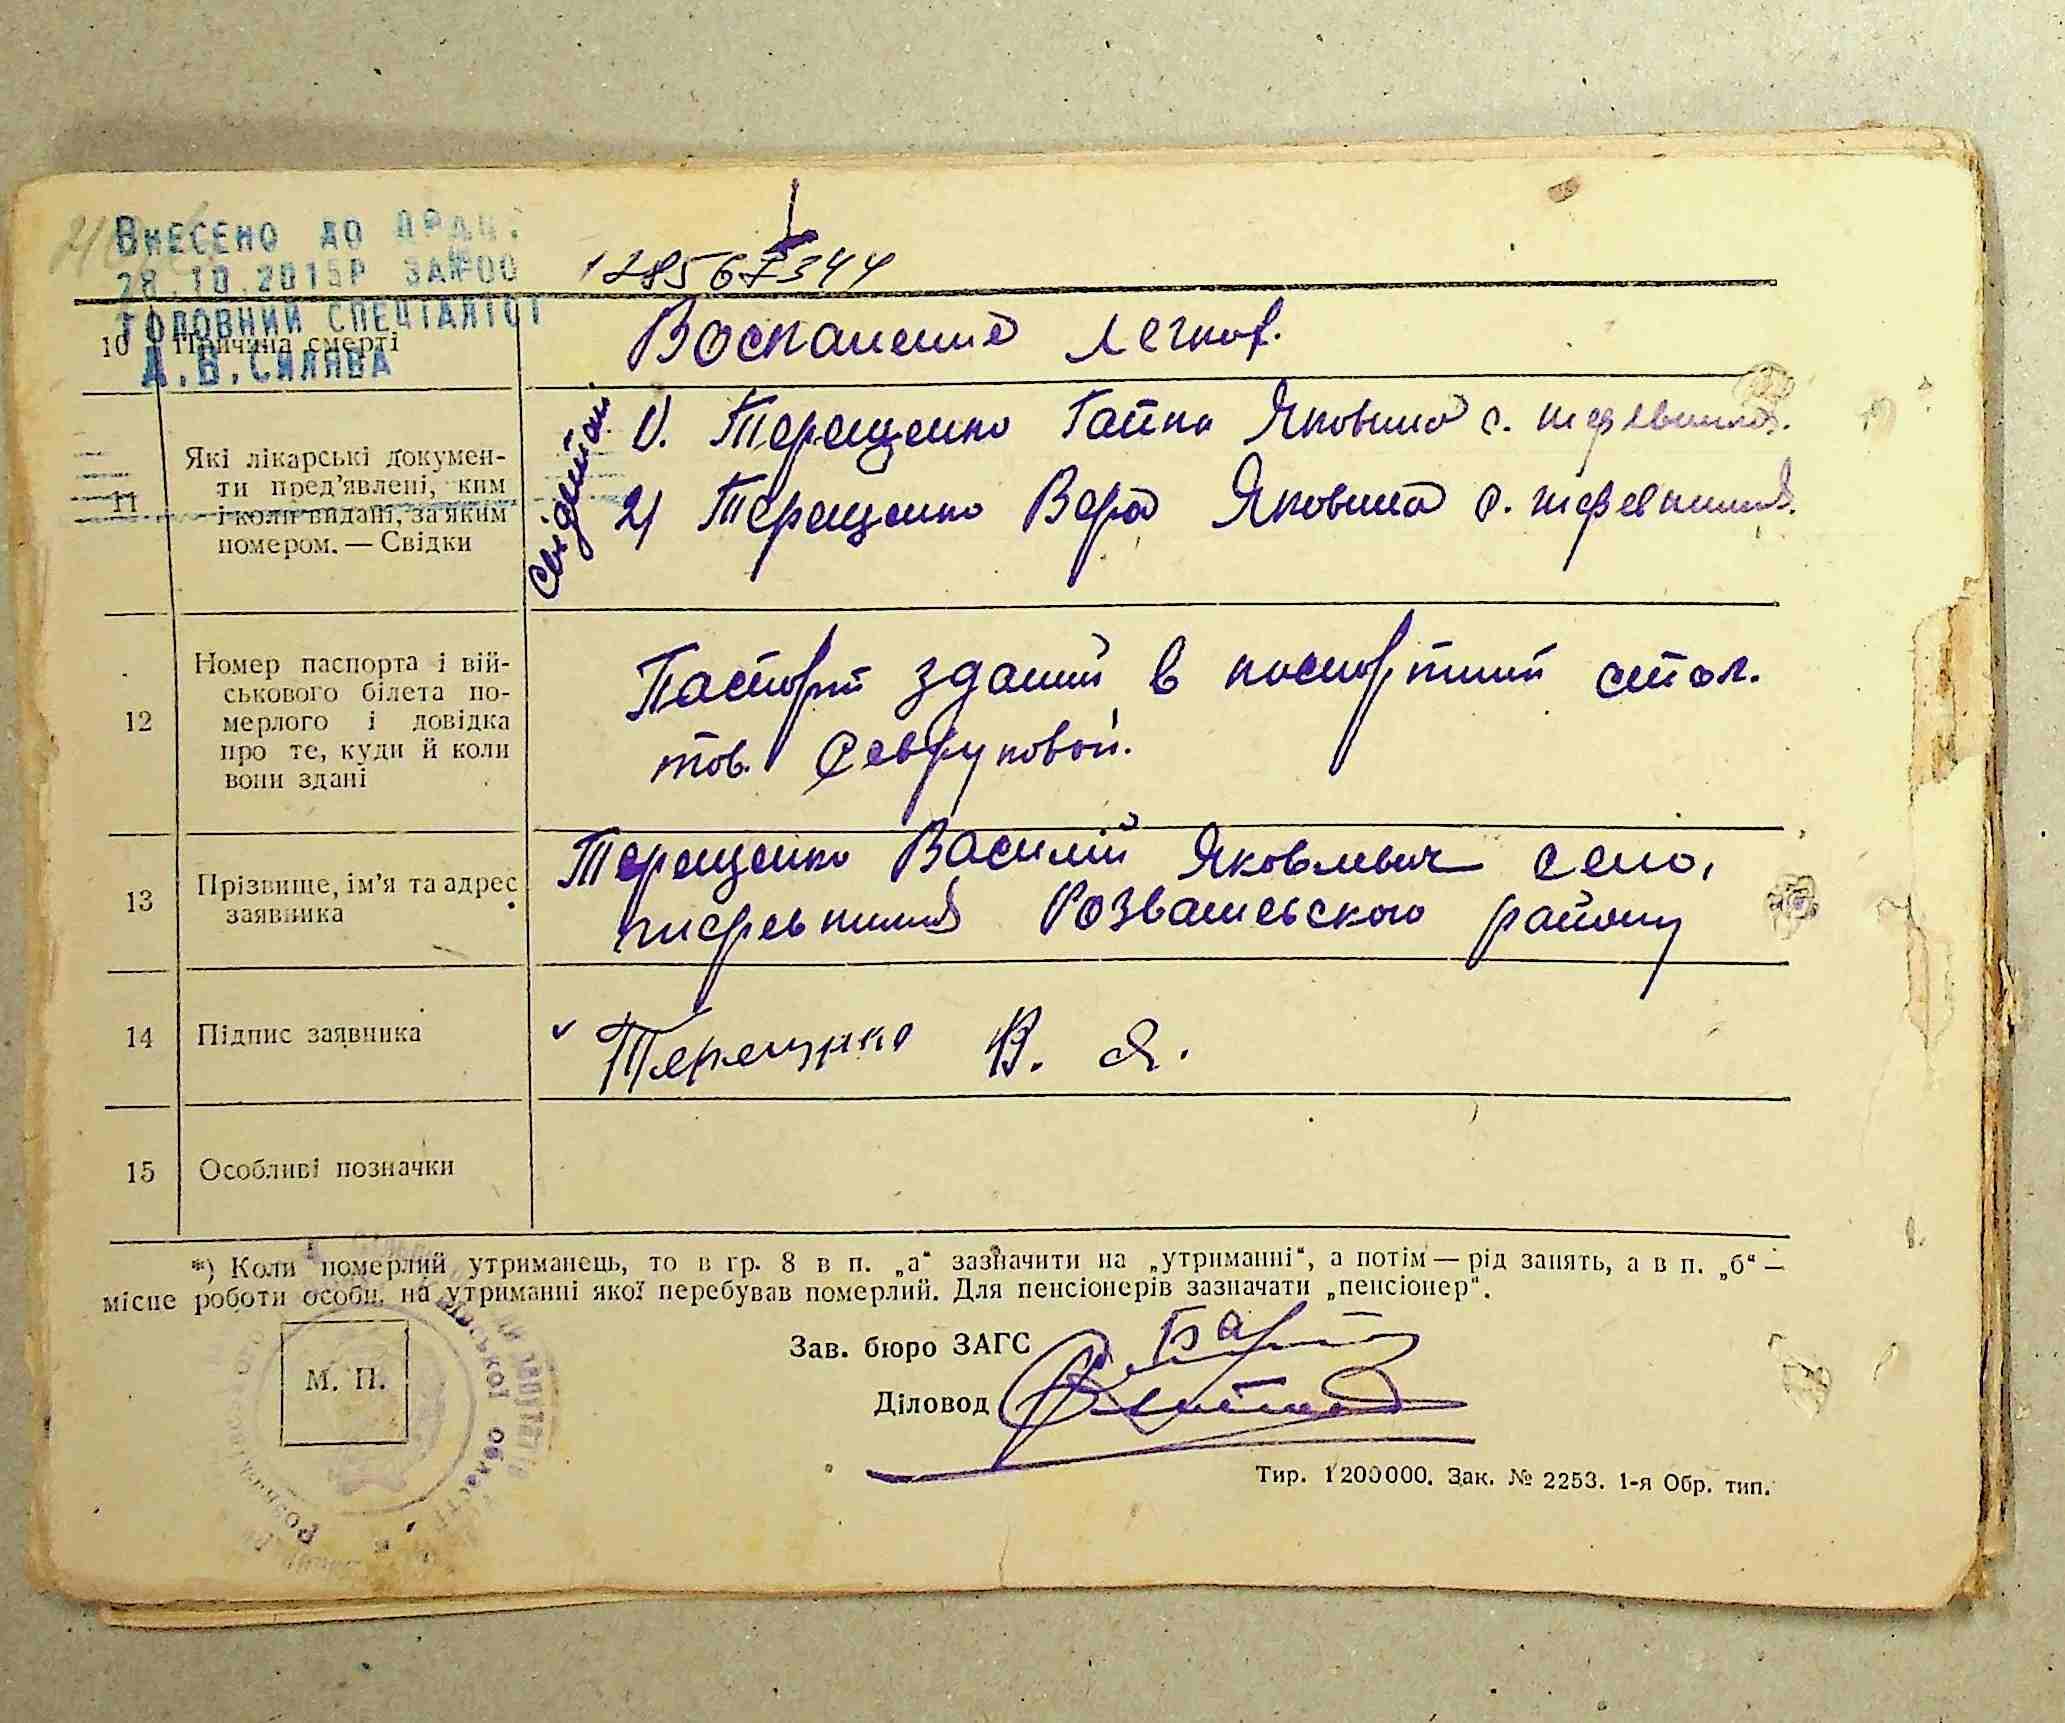 Внесено до ДРАЦ.
28.10.2015р за №00
головний спеціаліст
А.В.Силява
10 Причина смерті
Воспаление легких.
11 Які лікарські докумен-
ти пред'явлені, ким
і коли видані, за яким
номером. — Свідки
1). Терещенко Гапка Яковна с.
2) Терещенко Вера Яковна с.
12 Номер паспорта і вій-
ськового білета по-
мерлого і довідка
про те, куди й коли
вони здані
Паспорт зданий в паспортний стол.
тов. Севруковой.
13 Прізвище, ім'я та адрес
заявника
Терещенко Василій Яковлевич село,
Розважевського району
14 Підпис заявника
Терещенко В. Я.
15 Особливі позначки
*) Коли померлий утриманець, то в гр. 8 в п. „а“ зазначити на „утриманні“, а потім — рід занять, а в п. „б“ —
місце роботи особи, на утриманні якої перебував померлий. Для пенсіонерів зазначати „пенсіонер“.
М. П.
Зав. бюро ЗАГС
Діловод
Тир. 1200000. Зак. № 2253. 1-я Обр. тип.